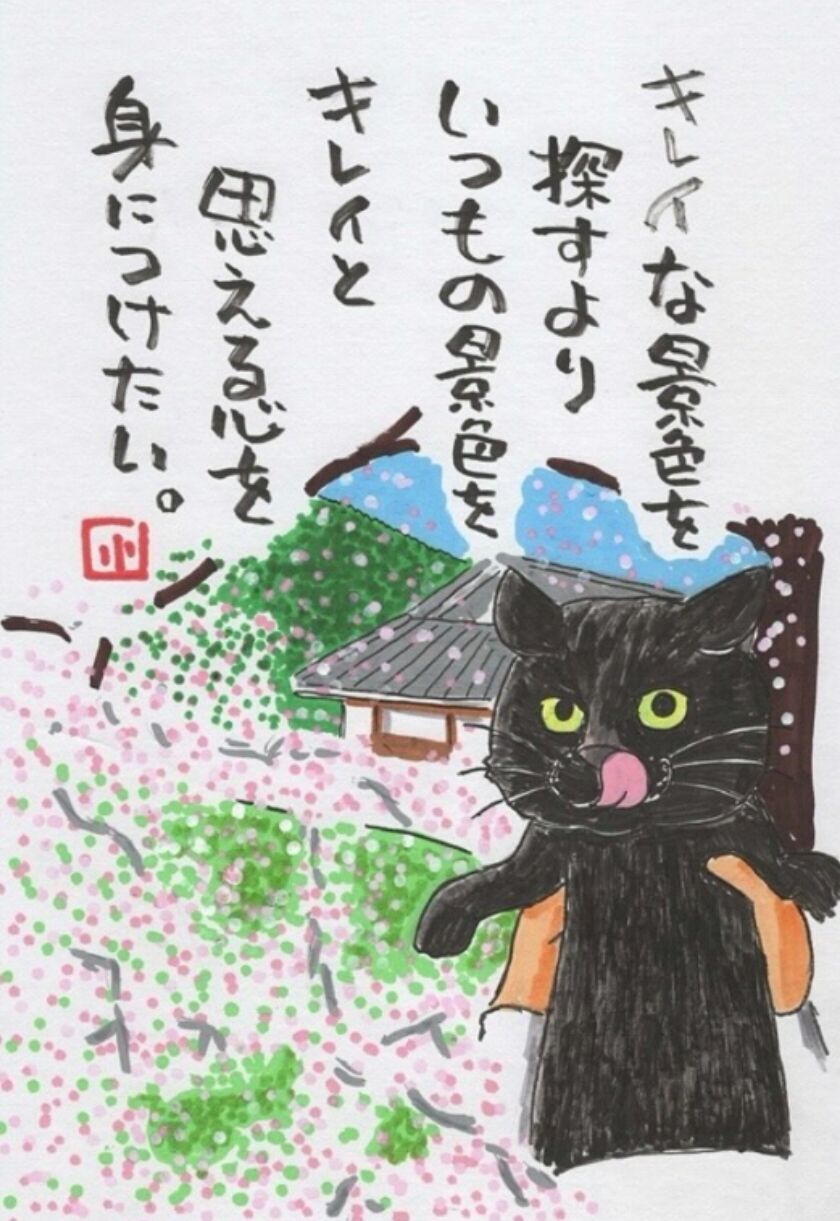 キレイな景色を
探すより
いつもの景色を
キレイと
思える心を
身につけたい。